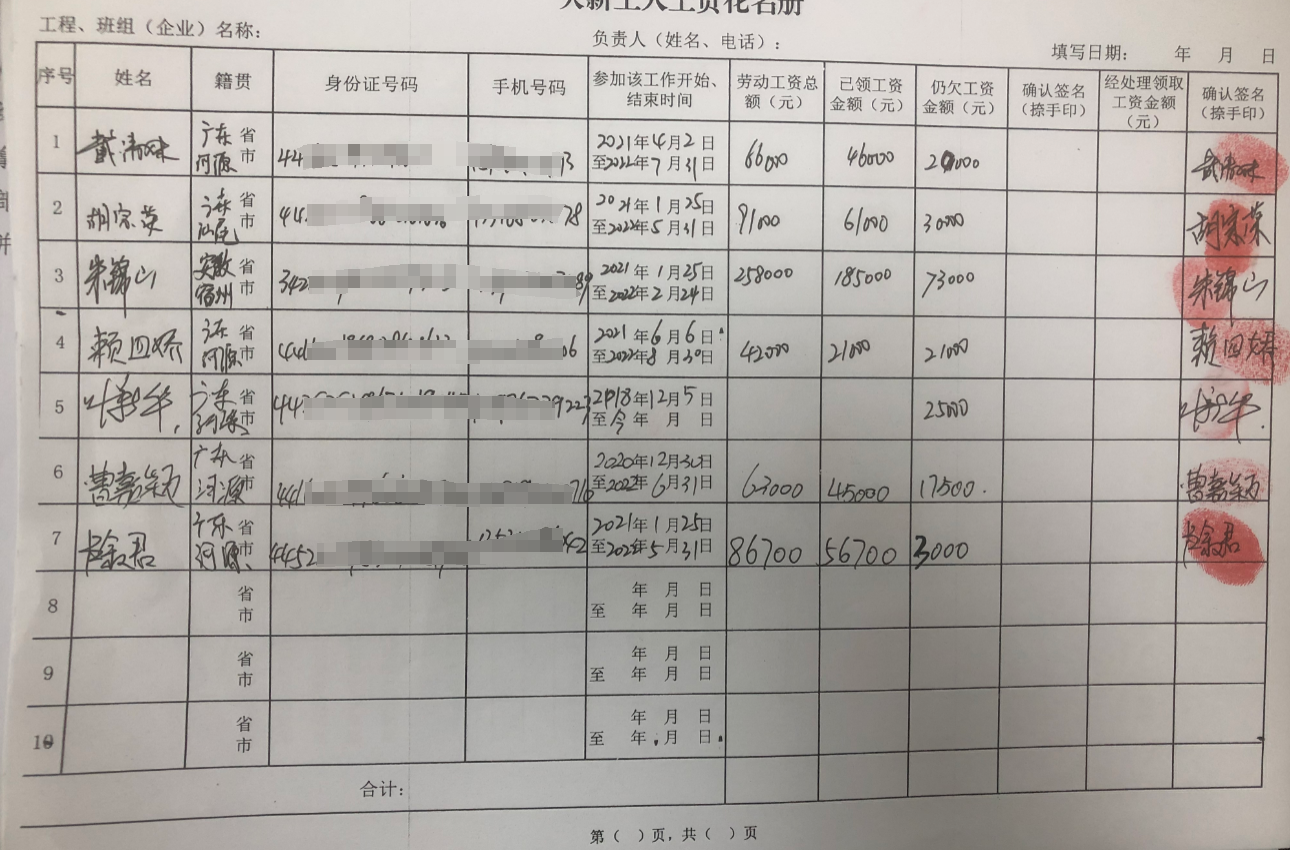 欠薪工人工资花名册
工程、班组（企业）名称：
负责人（姓名、电话）：
填写日期： 年 月 日
序号 姓名 籍贯 身份证号码 手机号码 参加该工作开始、结束时间 劳动工资总额（元） 已领工资金额（元） 仍欠工资金额（元） 确认签名（捺手印） 经处理领取工资金额（元） 确认签名（捺手印）
1 戴清味 广东省河源市 44 13 2021年4月2日至2022年7月31日 66000 46000 20000 戴清味
2 胡宗荣 广东省汕尾市 44 78 2021年1月25日至2022年5月31日 91000 61000 30000 胡宗荣
3 朱锦山 安徽省宿州市 342 89 2021年1月25日至2022年2月24日 258000 185000 73000 朱锦山
4 赖四娇 广东省河源市 06 2021年6月6日至2022年8月30日 42000 21000 21000 赖四娇
5 广东省河源市 44 9223 2018年12月5日至今年 月 日 25000
6 曹嘉颖 广东省河源市 44 716 2020年12月30日至2022年6月31日 63000 45000 17500. 曹嘉颖
7 广东省河源市 4452 42 2021年1月25日至2022年5月31日 86700 56700 3000
8 省市 年 月 日至 年 月 日
9 省市 年 月 日至 年 月 日
10 省市 年 月 日至 年 月 日
合计：
第（ ）页，共（ ）页